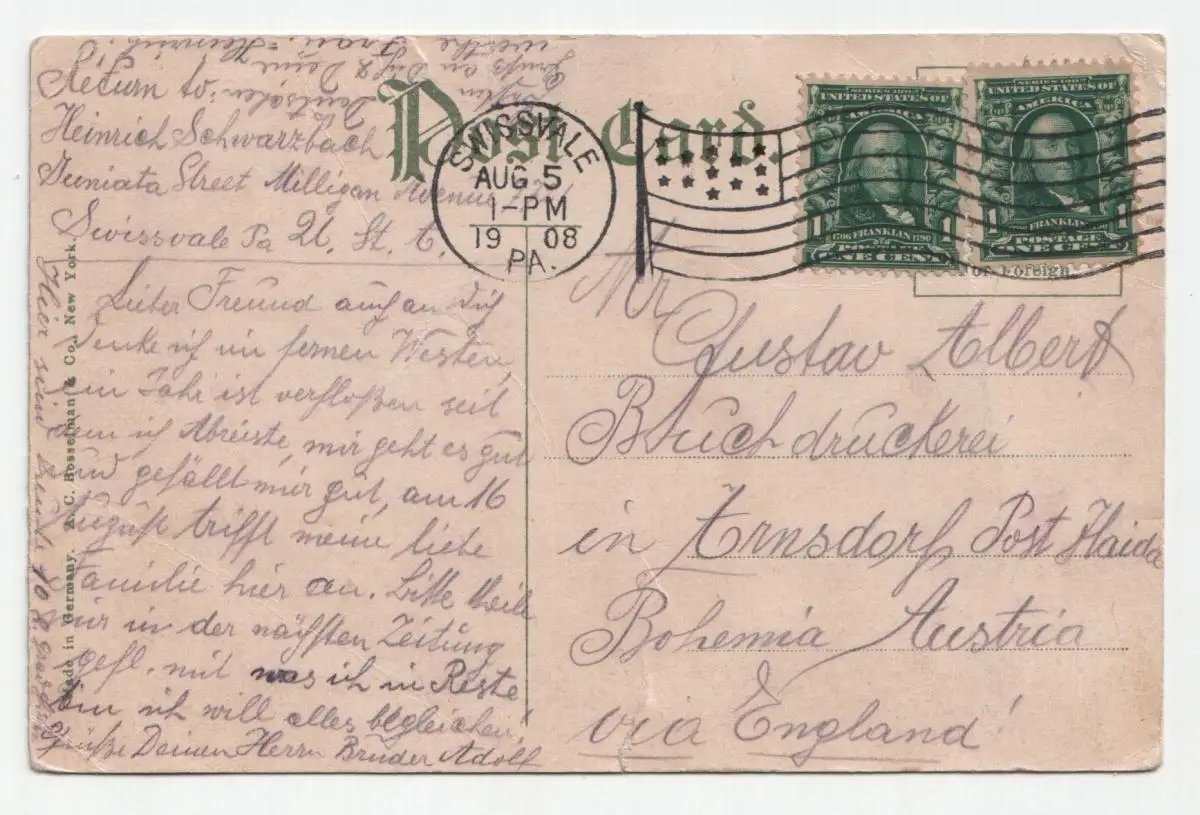 Return to:
Heinrich Schwarzbach
Juniata Street Milligan Avenue
Swissvale Pa U. St. A.
Lieber Freund auch an Dich
denke ich im fernen Westen,
ein Jahr ist verfloßen seit
dem ich Abreiste, mir geht es gut
und gefällt mir gut, am 16
August trifft meine liebe
Familie hier an. Bitte theile
mir in der nächsten Zeitung
gefl. mit was ich in Reste
bin ich will alles begleichen,
Grüße Deinen Herrn Bruder Adolf
Hier sind heute 40
Gruß an Dich & Deine
werthe Frau. Heinrich.
Post Card.
SWISSVALE
AUG 5
1-PM
1908
PA.
SERIES 1902
UNITED STATES OF
AMERICA
1706 FRANKLIN 1790
POSTAGE
1 ONE CENT 1
SERIES 1902
UNITED STATES OF
AMERICA
1706 FRANKLIN 1790
POSTAGE
1 ONE CENT 1
for Foreign
Mr
Gustav Albert
Buchdruckerei
in Arnsdorf, Post Haida
Bohemia Austria
via England!
Made in Germany. A. C. Bosselman & Co., New York.